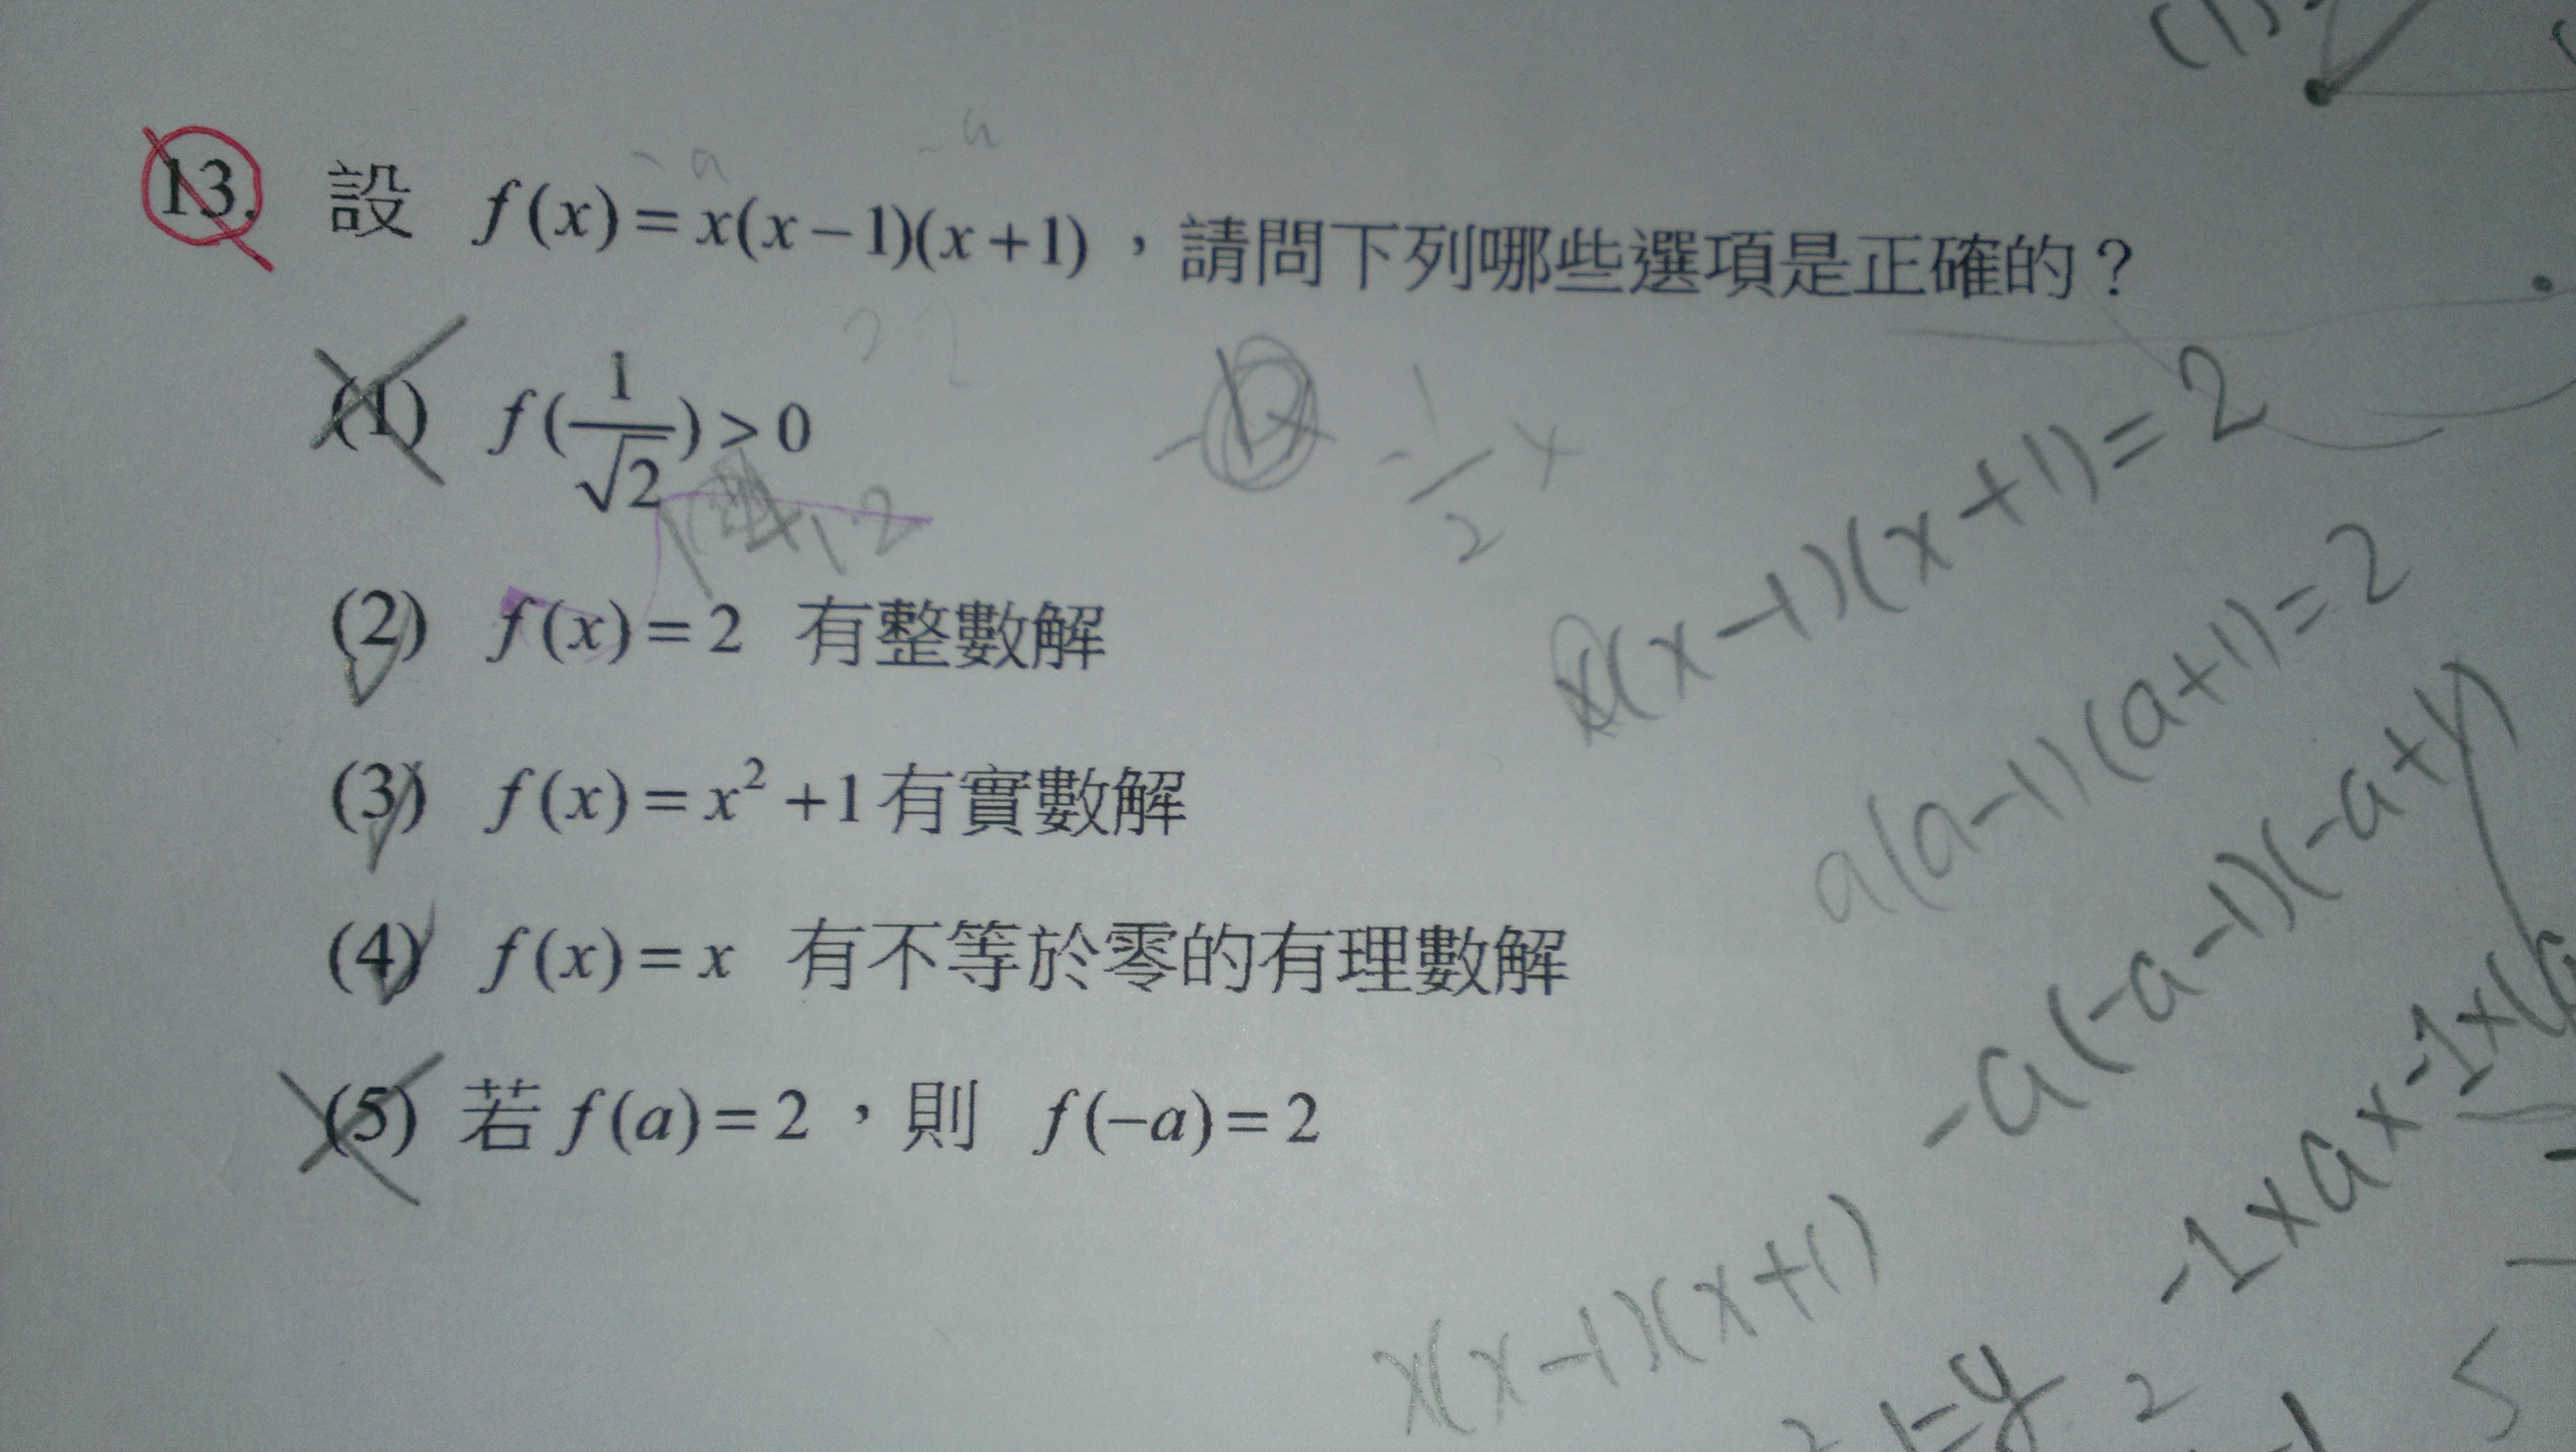 13. 設 f(x)=x(x-1)(x+1),請問下列哪些選項是正確的?
(1) f(1/√2)>0
(2) f(x)=2 有整數解
(3) f(x)=x²+1有實數解
(4) f(x)=x 有不等於零的有理數解
(5) 若 f(a)=2,則 f(-a)=2
-a
-a
-1/2
x(x-1)(x+1)=2
a(a-1)(a+1)=2
-a(-a-1)(-a+1)
-1×a×-1×(a
x(x-1)(x+1)